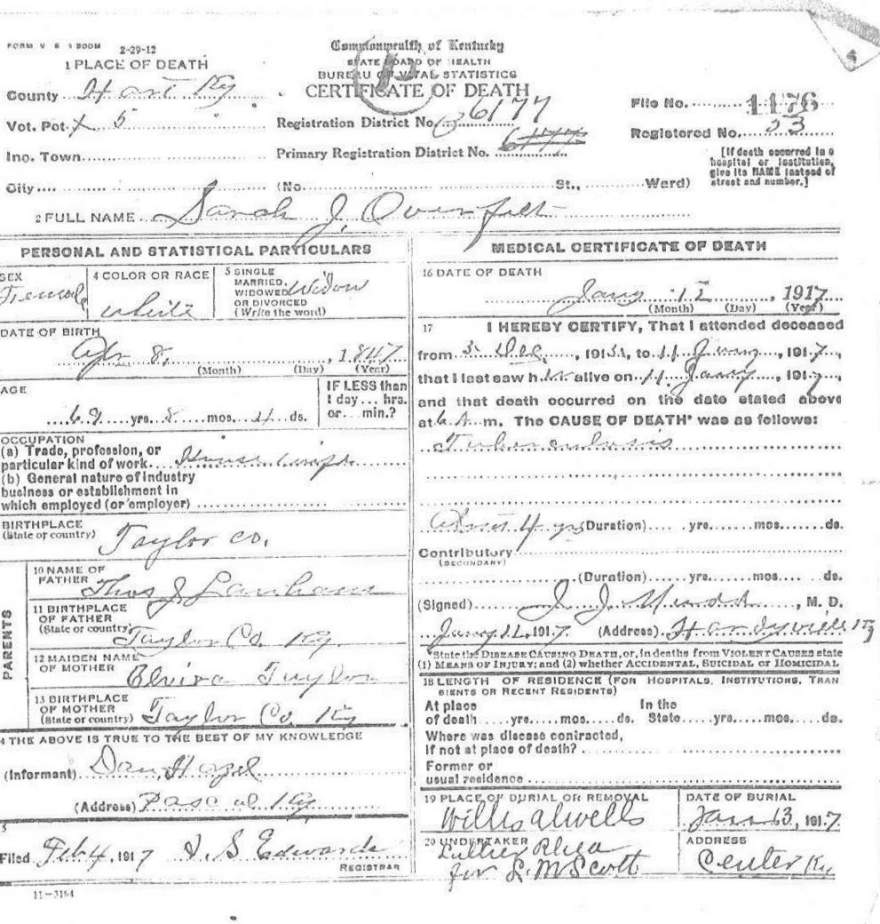 FORM V. S. 1 500M 2-29-12
1 PLACE OF DEATH
County Hart Ky
Vot. Pct. 5
Inc. Town
City
Commonwealth of Kentucky
STATE BOARD OF HEALTH
BUREAU OF VITAL STATISTICS
CERTIFICATE OF DEATH
Registration District No. 6177
Primary Registration District No.
(No. St., Ward)
File No. 1176
Registered No. 53
[If death occurred in a
hospital or institution,
give its NAME instead of
street and number.]
2 FULL NAME Sarah J. Overfelt
PERSONAL AND STATISTICAL PARTICULARS
SEX
Female
4 COLOR OR RACE
white
5 SINGLE
MARRIED,
WIDOWED Widow
OR DIVORCED
(Write the word)
DATE OF BIRTH
Apr 8, 1847
(Month) (Day) (Year)
AGE
69 yrs. 8 mos. ds.
IF LESS than
1 day... hrs.
or... min.?
OCCUPATION
(a) Trade, profession, or
particular kind of work House wife
(b) General nature of industry
business or establishment in
which employed (or employer)
BIRTHPLACE
(State or country) Taylor Co.
PARENTS
10 NAME OF
FATHER Thos J Lanham
11 BIRTHPLACE
OF FATHER
(State or country) Taylor Co. Ky
12 MAIDEN NAME
OF MOTHER Elvira Taylor
13 BIRTHPLACE
OF MOTHER
(State or country) Taylor Co. Ky
4 THE ABOVE IS TRUE TO THE BEST OF MY KNOWLEDGE
(Informant) Dan Hazel
(Address) Pascal Ky
5
Filed Feb 4, 1917 S Edwards
REGISTRAR
11-3184
MEDICAL CERTIFICATE OF DEATH
16 DATE OF DEATH
Jany 12, 1917
(Month) (Day) (Year)
17 I HEREBY CERTIFY, That I attended deceased
from 3 Dec, 191, to 11 Jany, 1917,
that I last saw her alive on 11 Jany, 191
and that death occurred on the date stated above
at 6 A. m. The CAUSE OF DEATH* was as follows:
Tuberculosis
About 4 yrs (Duration) yrs. mos. ds.
Contributory
(SECONDARY)
(Duration) yrs. mos. ds.
(Signed) J. J., M. D.
Jany 12, 1917 (Address) Hardyville Ky
*State the DISEASE CAUSING DEATH, or, in deaths from VIOLENT CAUSES state
(1) MEANS OF INJURY; and (2) whether ACCIDENTAL, SUICIDAL or HOMICIDAL
18 LENGTH OF RESIDENCE (FOR HOSPITALS, INSTITUTIONS, TRAN
SIENTS OR RECENT RESIDENTS)
At place In the
of death yrs. mos. ds. State yrs. mos. ds.
Where was disease contracted,
if not at place of death?
Former or
usual residence
19 PLACE OF BURIAL OR REMOVAL
Willis alwells
DATE OF BURIAL
Jan 13, 1917
20 UNDERTAKER
Luther Rhea
for L. M Scott
ADDRESS
Center Ky